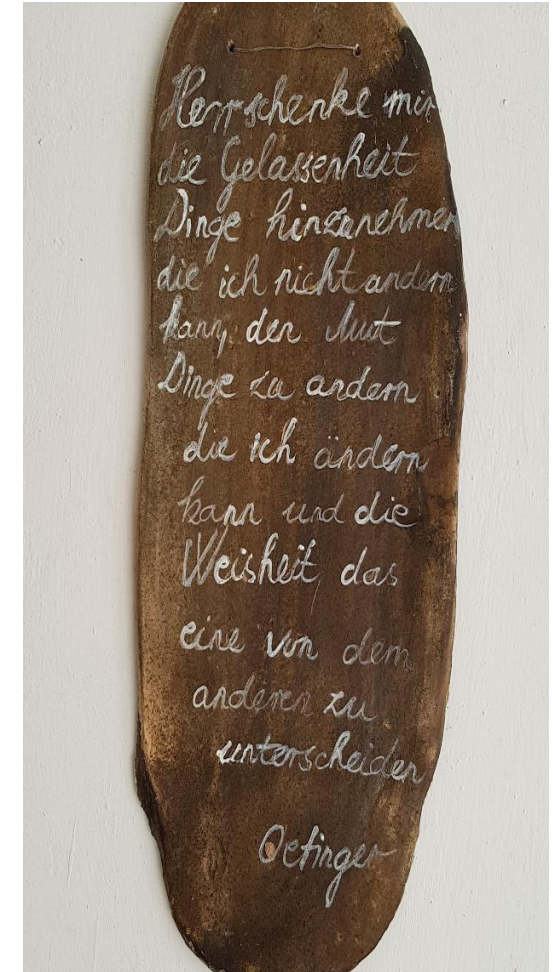 Herr schenke mir
die Gelassenheit
Dinge hinzunehmen
die ich nicht andern
kann, den Mut
Dinge zu andern
die ich ändern
kann und die
Weisheit, das
eine von dem
anderen zu
unterscheiden
Oetinger